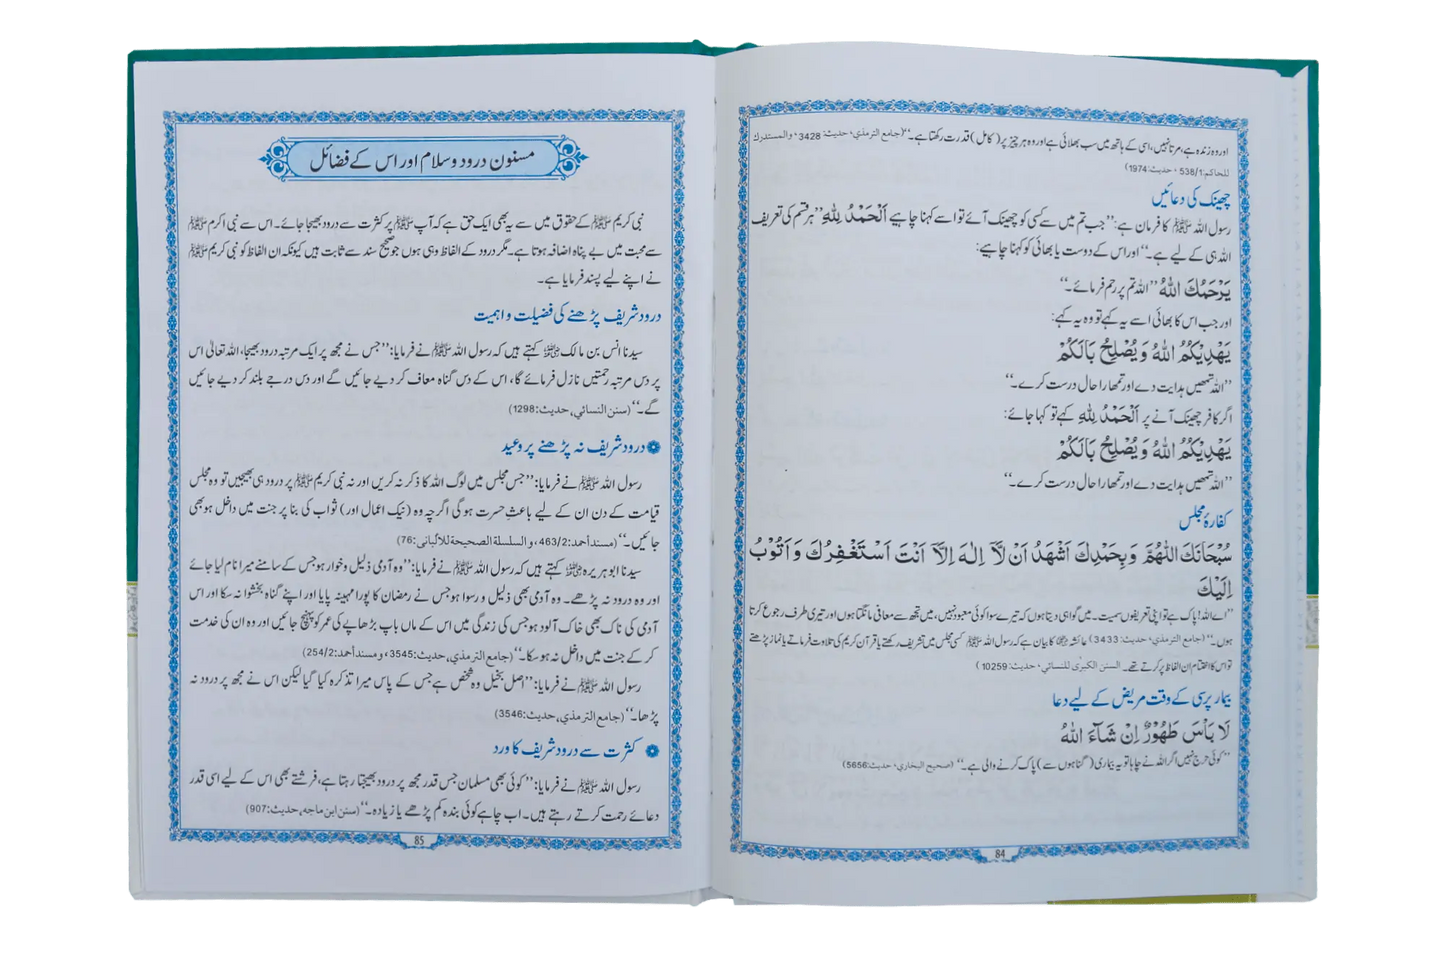 اور وہ زندہ ہے، مرتا نہیں، اسی کے ہاتھ میں سب بھلائی ہے اور وہ ہر چیز پر (کامل) قدرت رکھتا ہے۔‘‘ (جامع الترمذي، حديث: 3428، والمستدرك
للحاكم: 538/1، حديث: 1974)
چھینک کی دعائیں
رسول اللہ ﷺ کا فرمان ہے: ’’جب تم میں سے کسی کو چھینک آئے تو اسے کہنا چاہیے اَلْحَمْدُ لِلّٰهِ ’’ہر قسم کی تعریف
اللہ ہی کے لیے ہے۔‘‘ اور اس کے دوست یا بھائی کو کہنا چاہیے:
يَرْحَمُكَ اللّٰهُ ’’اللہ تم پر رحم فرمائے۔‘‘
اور جب اس کا بھائی اسے یہ کہے تو وہ یہ کہے:
يَهْدِيْكُمُ اللّٰهُ وَيُصْلِحُ بَالَكُمْ
’’اللہ تمھیں ہدایت دے اور تمھارا حال درست کرے۔‘‘
اگر کافر چھینک آنے پر اَلْحَمْدُ لِلّٰهِ کہے تو کہا جائے:
يَهْدِيْكُمُ اللّٰهُ وَيُصْلِحُ بَالَكُمْ
’’اللہ تمھیں ہدایت دے اور تمھارا حال درست کرے۔‘‘
کفارۂ مجلس
سُبْحَانَكَ اللّٰهُمَّ وَبِحَمْدِكَ اَشْهَدُ اَنْ لَّآ اِلٰهَ اِلَّآ اَنْتَ اَسْتَغْفِرُكَ وَاَتُوْبُ
اِلَيْكَ
’’اے اللہ! پاک ہے تو اپنی تعریفوں سمیت۔ میں گواہی دیتا ہوں کہ تیرے سوا کوئی معبود نہیں، میں تجھ سے معافی مانگتا ہوں اور تیری طرف رجوع کرتا
ہوں۔‘‘ (جامع الترمذي، حديث: 3433) عائشہ ؓ کا بیان ہے کہ رسول اللہ ﷺ کسی مجلس میں تشریف رکھتے یا قرآن کریم کی تلاوت فرماتے یا نماز پڑھتے
تو اس کا اختتام ان الفاظ پر کرتے تھے۔ السنن الكبرى للنسائي، حديث: 10259)
بیمار پرسی کے وقت مریض کے لیے دعا
لَا بَأْسَ طَهُوْرٌ اِنْ شَآءَ اللّٰهُ
’’کوئی حرج نہیں اگر اللہ نے چاہا تو یہ بیماری (گناہوں سے) پاک کرنے والی ہے۔‘‘ (صحيح البخاري، حديث: 5656)
84
مسنون درود و سلام اور اس کے فضائل
نبی کریم ﷺ کے حقوق میں سے یہ بھی ایک حق ہے کہ آپ ﷺ پر کثرت سے درود بھیجا جائے۔ اس سے نبی اکرم ﷺ
سے محبت میں بے پناہ اضافہ ہوتا ہے۔ مگر درود کے الفاظ وہی ہوں جو صحیح سند سے ثابت ہیں کیونکہ ان الفاظ کو نبی کریم ﷺ
نے اپنے لیے پسند فرمایا ہے۔
درود شریف پڑھنے کی فضیلت و اہمیت
سیدنا انس بن مالک ؓ کہتے ہیں کہ رسول اللہ ﷺ نے فرمایا: ’’جس نے مجھ پر ایک مرتبہ درود بھیجا، اللہ تعالیٰ اس
پر دس مرتبہ رحمتیں نازل فرمائے گا، اس کے دس گناہ معاف کر دیے جائیں گے اور دس درجے بلند کر دیے جائیں
گے۔‘‘ (سنن النسائي، حديث: 1298)
درود شریف نہ پڑھنے پر وعید
رسول اللہ ﷺ نے فرمایا: ’’جس مجلس میں لوگ اللہ کا ذکر نہ کریں اور نہ نبی کریم ﷺ پر درود ہی بھیجیں تو وہ مجلس
قیامت کے دن ان کے لیے باعثِ حسرت ہوگی اگرچہ وہ (نیک اعمال اور) ثواب کی بنا پر جنت میں داخل ہو بھی
جائیں۔‘‘ (مسند أحمد: 463/2، و السلسلة الصحيحة للألباني: 76)
سیدنا ابوہریرہ ؓ کہتے ہیں کہ رسول اللہ ﷺ نے فرمایا: ’’وہ آدمی ذلیل و خوار ہو جس کے سامنے میرا نام لیا جائے
اور وہ درود نہ پڑھے۔ وہ آدمی بھی ذلیل و رسوا ہو جس نے رمضان کا پورا مہینہ پایا اور اپنے گناہ بخشوا نہ سکا اور اس
آدمی کی ناک بھی خاک آلود ہو جس کی زندگی میں اس کے ماں باپ بڑھاپے کی عمر کو پہنچ جائیں اور وہ ان کی خدمت
کر کے جنت میں داخل نہ ہو سکا۔‘‘ (جامع الترمذي، حديث: 3545، و مسند أحمد: 254/2)
رسول اللہ ﷺ نے فرمایا: ’’اصل بخیل وہ شخص ہے جس کے پاس میرا تذکرہ کیا گیا لیکن اس نے مجھ پر درود نہ
پڑھا۔‘‘ (جامع الترمذي، حديث: 3546)
کثرت سے درود شریف کا ورد
رسول اللہ ﷺ نے فرمایا: ’’کوئی بھی مسلمان جس قدر مجھ پر درود بھیجتا رہتا ہے، فرشتے بھی اس کے لیے اسی قدر
دعائے رحمت کرتے رہتے ہیں۔ اب چاہے کوئی بندہ کم پڑھے یا زیادہ۔‘‘ (سنن ابن ماجه، حديث: 907)
85